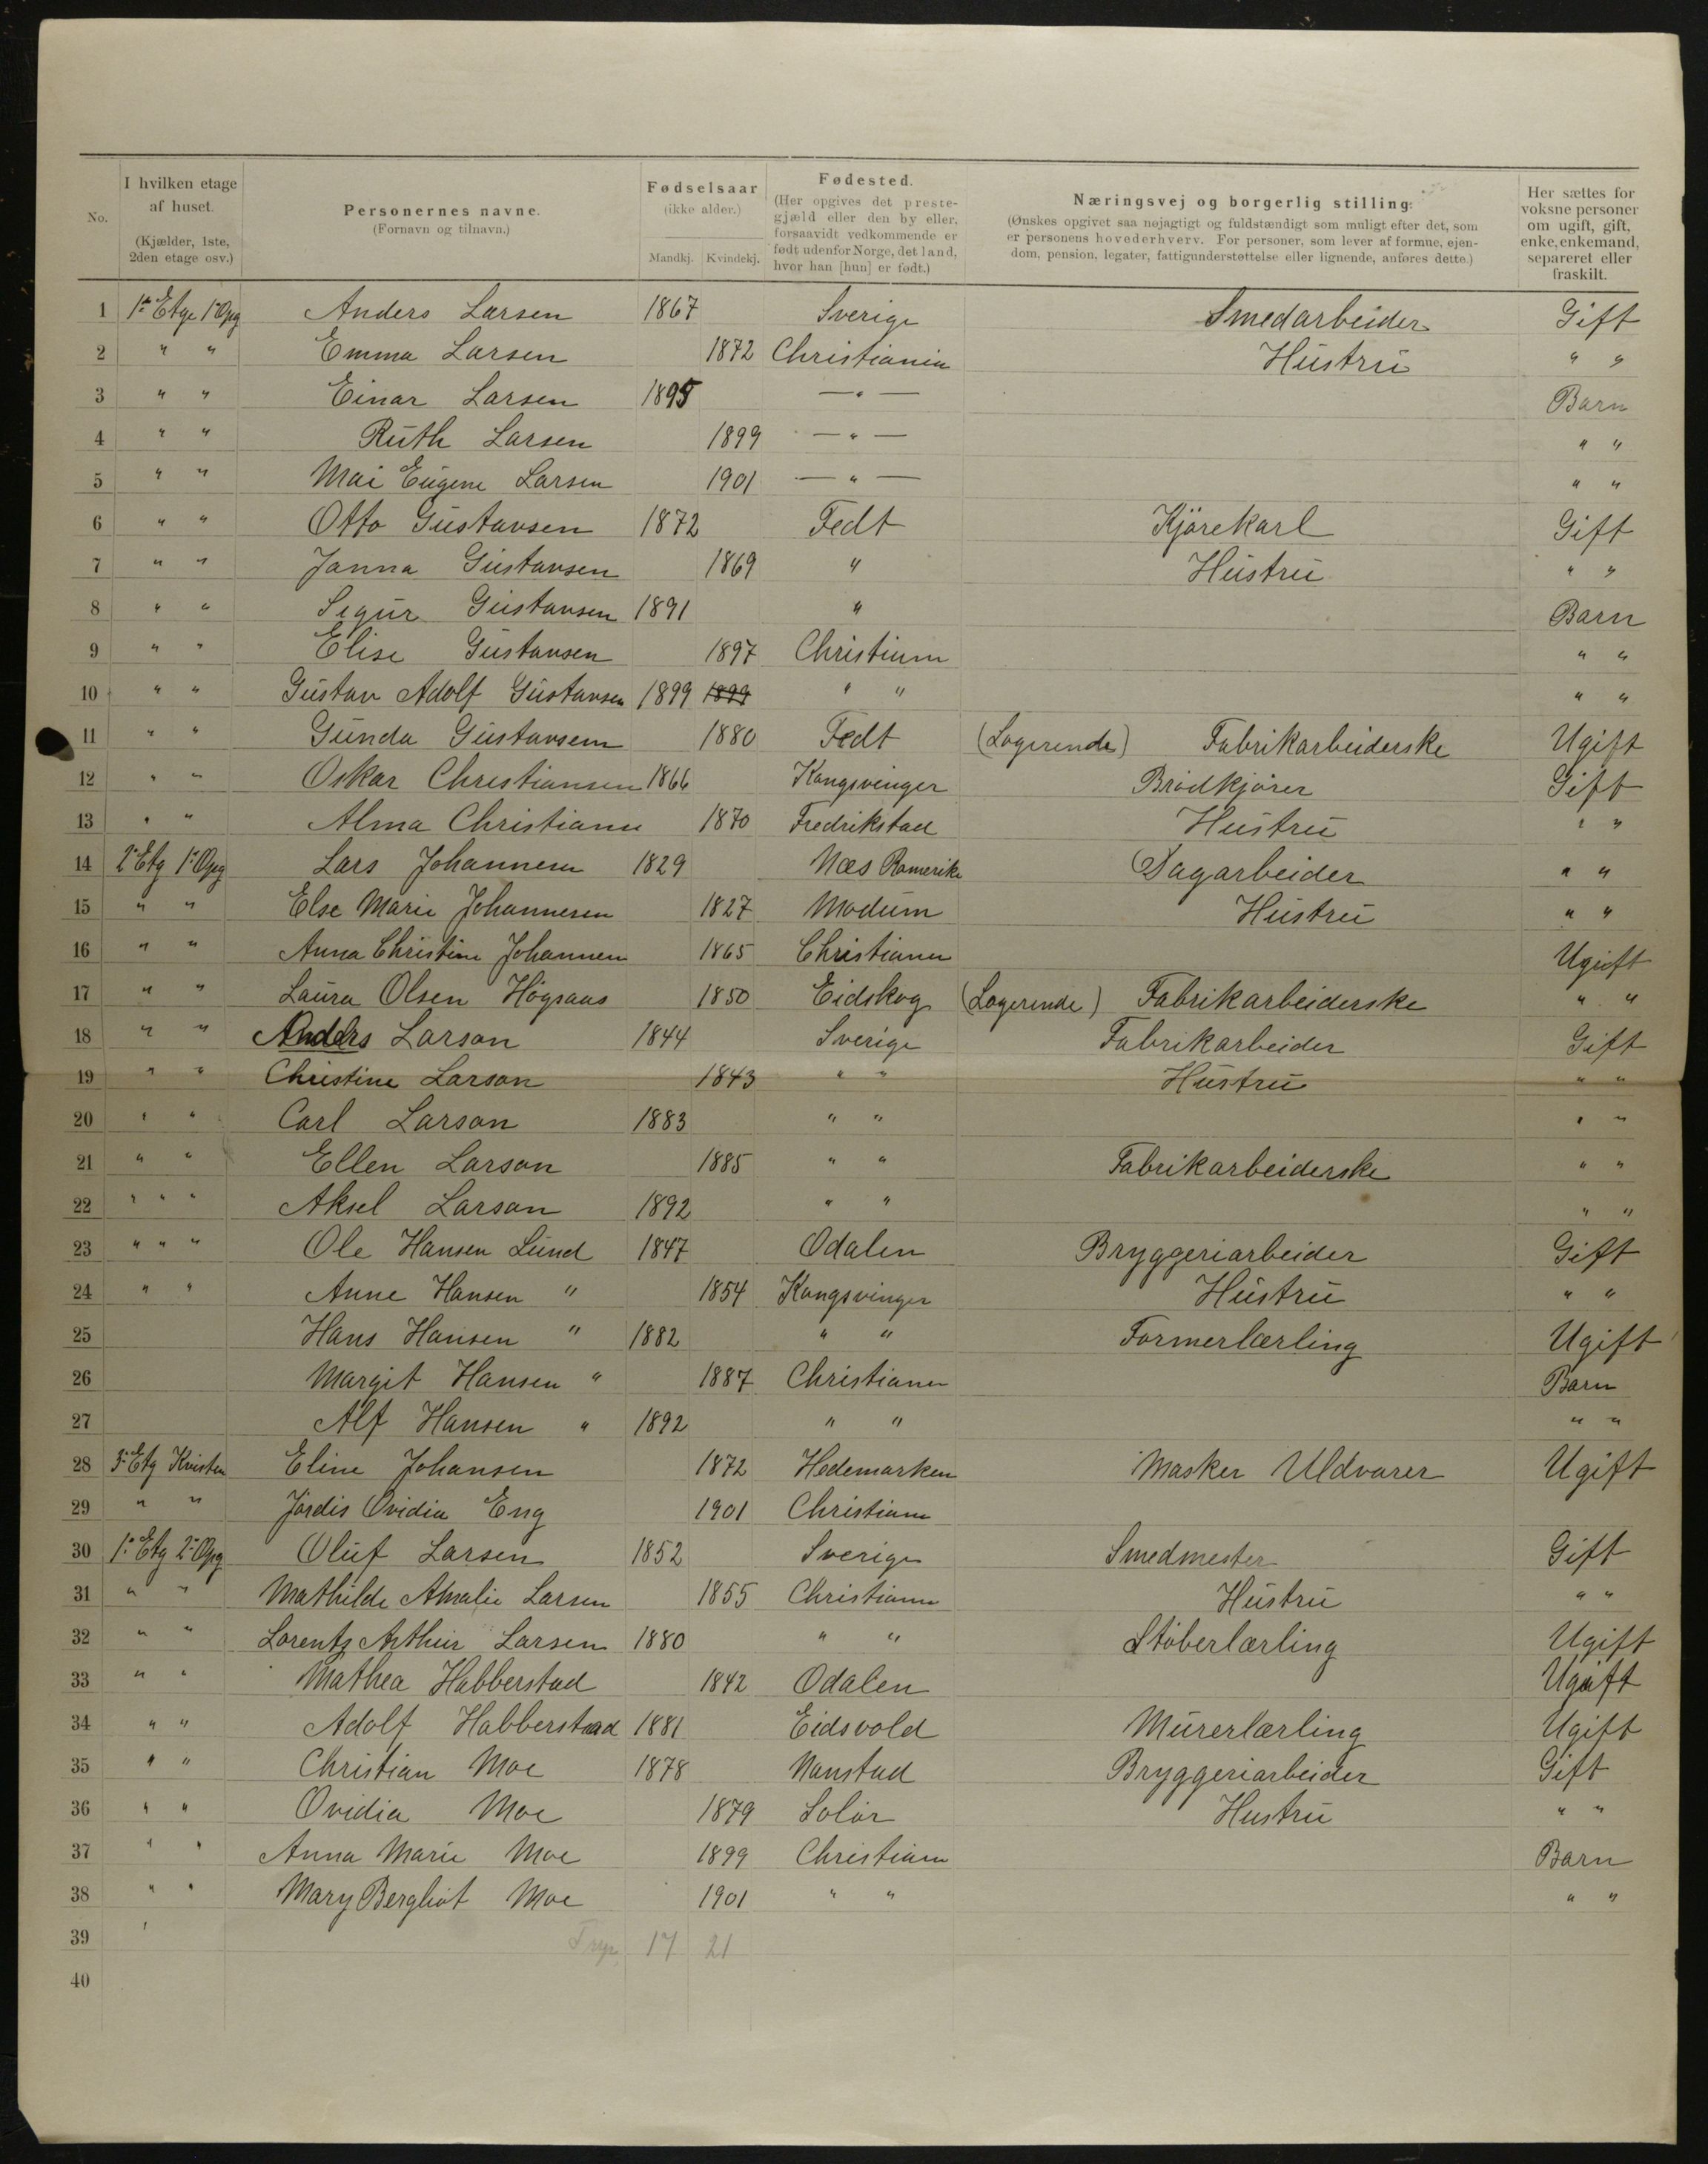 No. | I hvilken etage af huset. (Kjælder, 1ste, 2den etage osv.) | Personernes navne. (Fornavn og tilnavn.) | Fødselsaar (ikke alder.) Mandkj. Kvindekj. | Fødested. (Her opgives det prestegjæld eller den by eller, forsaavidt vedkommende er født udenfor Norge, det land, hvor han [hun] er født.) | Næringsvej og borgerlig stilling: (Ønskes opgivet saa nøjagtigt og fuldstændigt som muligt efter det, som er personens hovederhverv. For personer, som lever af formue, ejendom, pension, legater, fattigunderstøttelse eller lignende, anføres dette.) | Her sættes for voksne personer om ugift, gift, enke, enkemand, separeret eller fraskilt.
1 1ª Etge 1ª Opg Anders Larsen 1867 Sverige Smedarbeider Gift
2 " " Emma Larsen 1872 Christiania Hustru " "
3 " " Einar Larsen 1895 — " — Barn
4 " " Ruth Larsen 1899 — " — " "
5 " " Mai Eugene Larsen 1901 — " — " "
6 " " Otto Gustavsen 1872 Fedt Kjörekarl Gift
7 " " Janna Gustavsen 1869 " Hustru " "
8 " " Sigur Gustavsen 1891 " Barn
9 " " Elise Gustavsen 1897 Christiania " "
10 " " Gustav Adolf Gustavsen 1899 1899 " " " "
11 " " Gunda Gustavsen 1880 Fedt (Logerende) Fabrikarbeiderske Ugift
12 " " Oskar Christiansen 1866 Kongsvinger Brödkjörer Gift
13 " " Alma Christiansen 1870 Fredrikstad Hustru " "
14 2: Etg 1: Opg Lars Johannesen 1829 Næs Romerike Dagarbeider " "
15 " " Else Marie Johannesen 1827 Modum Hustru " "
16 " " Anna Christine Johannesen 1865 Christiania Ugift
17 " " Laura Olsen Högsaas 1850 Eidskog (Logerende) Fabrikarbeiderske " "
18 " " Anders Larson 1844 Sverige Fabrikarbeider Gift
19 " " Christine Larson 1843 " " Hustru " "
20 " " Carl Larson 1883 " " " "
21 " " Ellen Larson 1885 " " Fabrikarbeiderske " "
22 " " " Aksel Larson 1892 " " " "
23 " " " Ole Hansen Lund 1847 Odalen Bryggeriarbeider Gift
24 " " Anne Hansen " 1854 Kongsvinger Hustru " "
25 Hans Hansen " 1882 " " Formerlærling Ugift
26 Margit Hansen " 1887 Christiania Barn
27 Alf Hansen " 1892 " " " "
28 3: Etg Kvisten Eline Johansen 1872 Hedemarken Masker Uldvarer Ugift
29 " " Jördis Ovidia Eng 1901 Christiania
30 1: Etg 2: Opg Oluf Larsen 1852 Sverige Smedmester Gift
31 " " Mathilde Amalie Larsen 1855 Christiania Hustru " "
32 " " Lorentz Arthur Larsen 1880 " " Stöberlærling Ugift
33 " " Mathea Habberstad 1842 Odalen Ugift
34 " " Adolf Habberstad 1881 Eidsvold Murerlærling Ugift
35 " " Christian Moe 1878 Nanstad Bryggeriarbeider Gift
36 " " Ovidia Moe 1879 Solör Hustru " "
37 " " Anna Marie Moe 1899 Christiania Barn
38 " " Mary Bergliot Moe 1901 " " " "
39 ' 17 21
40